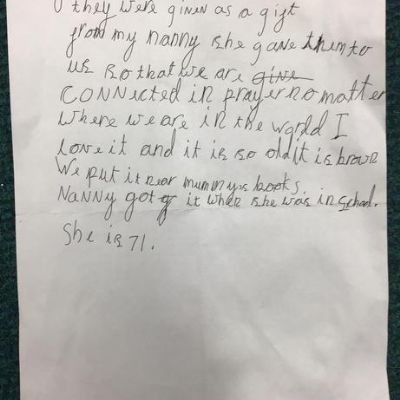 they were given as a gift
from my nanny she gave them to
us so that we are give
CONNected in prayer no matter
where we are in the world I
love it and it is so old it is brown
We put it near mummys books.
NaNNY got it when she was in school.
She is 71.